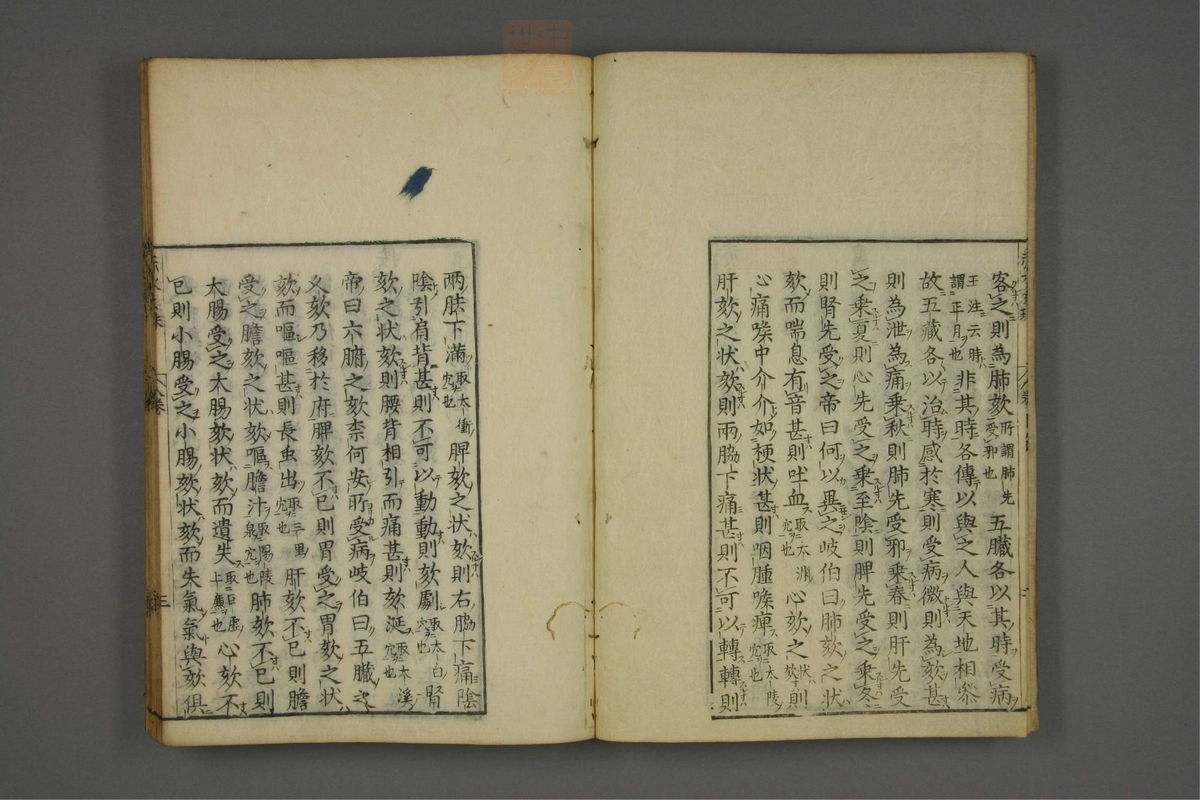 客之則為肺欬所謂肺先受邪也五臓各以其時受病
王注云時謂正月也非其時各傳以與之人與天地相參
故五藏各以治時感於寒則受病微則為欬甚
則為泄為痛乗秋則肺先受邪乗春則肝先受
之乗夏則心先受之乗至陰則脾先受之乗冬
則腎先受之帝曰何以異之岐伯曰肺欬之状
欬而喘息有音甚則吐血取太渊穴也心欬之状欬則
心痛喉中介介如梗状甚則咽腫喉痺取太陵穴也
肝欬之状欬則兩脇下痛甚則不可以轉轉則
兩胠下滿取太衝穴也脾欬之状欬則右脇下痛陰
陰引肩背甚則不可以動動則欬劇取太白穴也腎
欬之状欬則腰背相引而痛甚則欬涎取太溪穴也
帝曰六腑之欬柰何安所受病岐伯曰五臓之
乆欬乃移於府脾欬不已則胃受之胃欬之状
欬而嘔嘔甚則長虫出取三里穴也肝欬不已則膽
受之膽欬之状欬嘔膽汁取陽陵泉穴也肺欬不已則
大腸受之大腸欬状欬而遺失取巨虚上廉也心欬不
已則小腸受之小腸欬状欬而失氣氣與欬俱